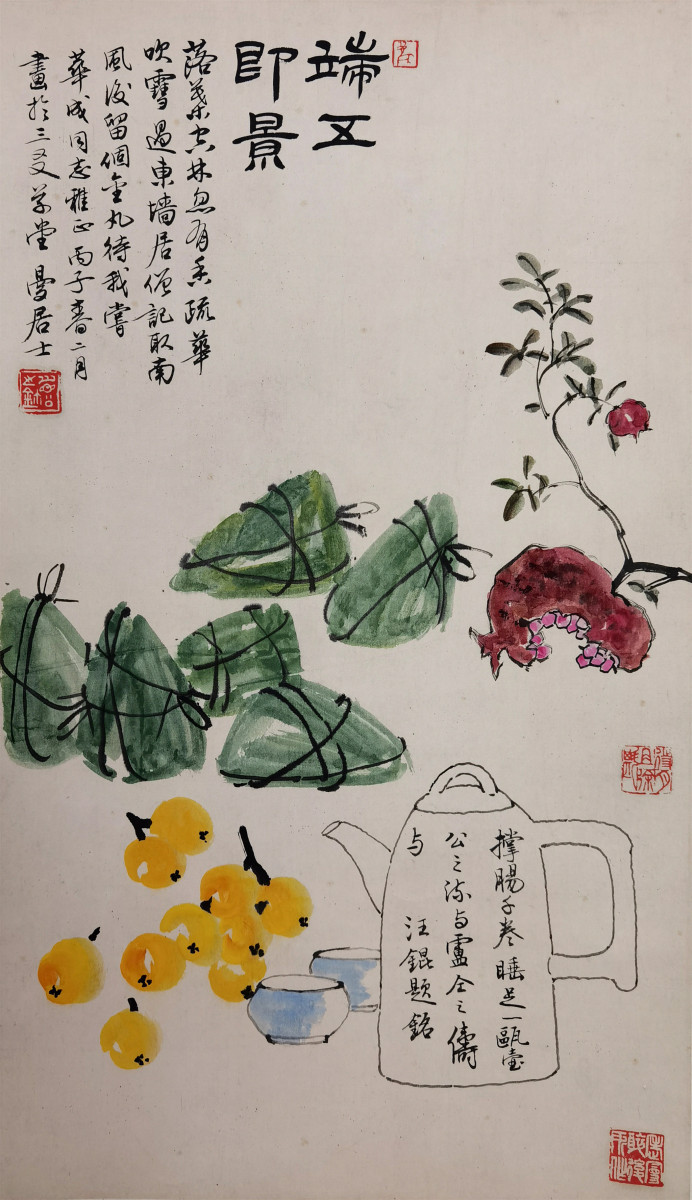 端五
即景
落葉空林忽有香疏華
吹雪過東墻居僧記取南
風後留個金丸待我嘗
華成同志雅正丙子春二月
畫於三爻草堂曼居士
撑腸子卷睡足一甌壺
公之流与盧仝之儔
与 汪錕題銘